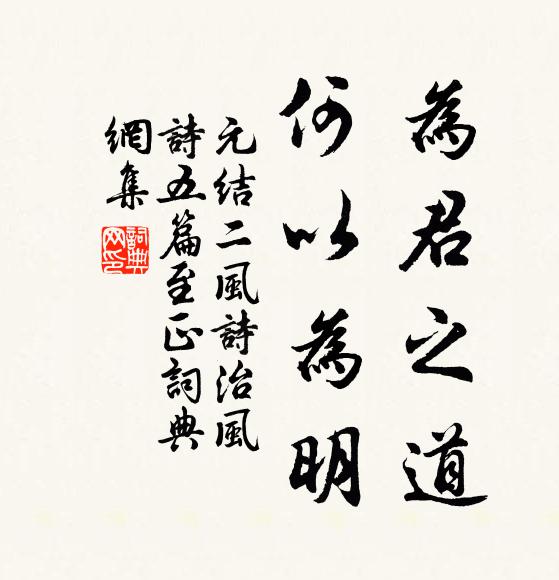 為君之道
何以為明
元結二風詩治風
詩五篇至正詞典
網集
詞典網印